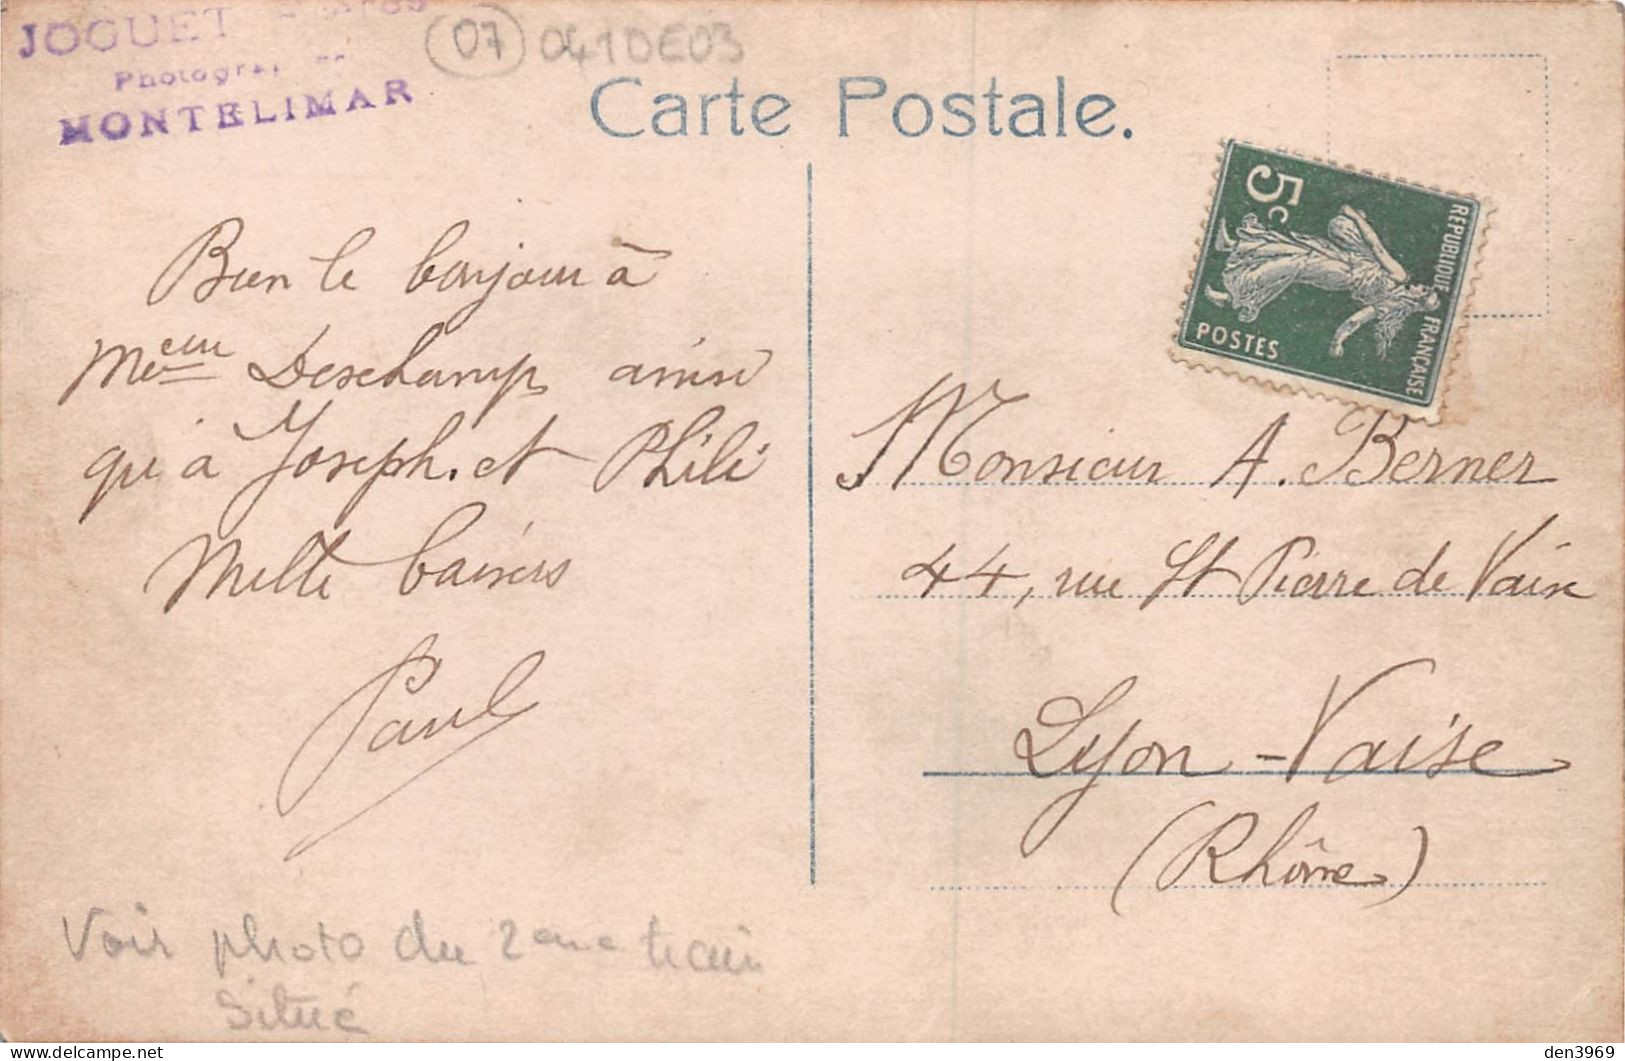 JOGUET
Photogra
MONTELIMAR
07 041DE03
Carte Postale.
5c
REPUBLIQUE FRANÇAISE
POSTES
Bien le bonjour à
Deschamp ainsi
qu'à Joseph. et Phili
Mille baisers
Paul
Monsieur A. Berner
44, rue St Pierre de Vaise
Lyon-Vaise
(Rhône)
Voir photo du 2eme train
Situé
den3969